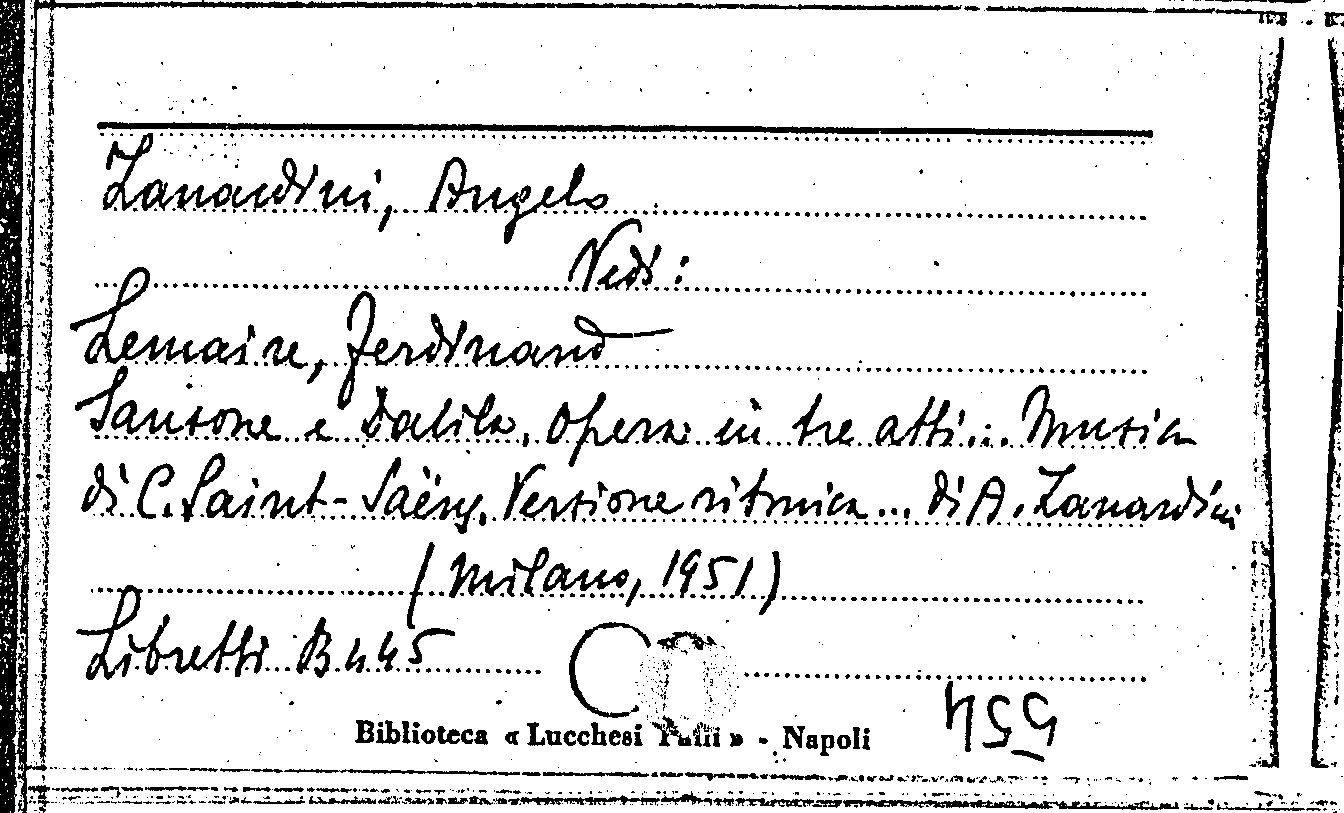 Zanardini, Angelo
Vedi:
Lemaire, Ferdinand
Sansone e Dalila. Opera in tre atti... Musica
di C. Saint-Saëns. Versione ritmica... di A. Zanardini
(Milano, 1951)
Libretti B 445
Biblioteca « Lucchesi Palli » - Napoli